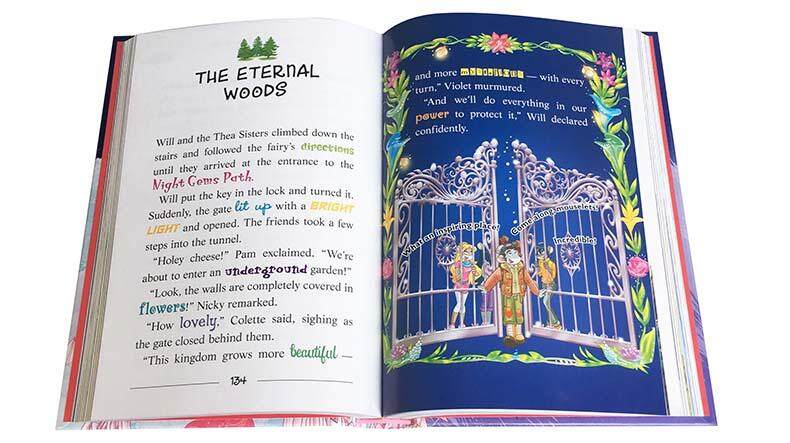 THE ETERNAL
WOODS
Will and the Thea Sisters climbed down the
stairs and followed the fairy's directions
until they arrived at the entrance to the
Night Gems Path.
Will put the key in the lock and turned it.
Suddenly, the gate lit up with a BRIGHT
LIGHT and opened. The friends took a few
steps into the tunnel.
"Holey cheese!" Pam exclaimed. "We're
about to enter an underground garden!"
"Look, the walls are completely covered in
flowers!" Nicky remarked.
"How lovely," Colette said, sighing as
the gate closed behind them.
"This kingdom grows more beautiful —
134
and more mysterious — with every
turn," Violet murmured.
"And we'll do everything in our
power to protect it," Will declared
confidently.
What an inspiring place!
Come along, mouselets!
Incredible!